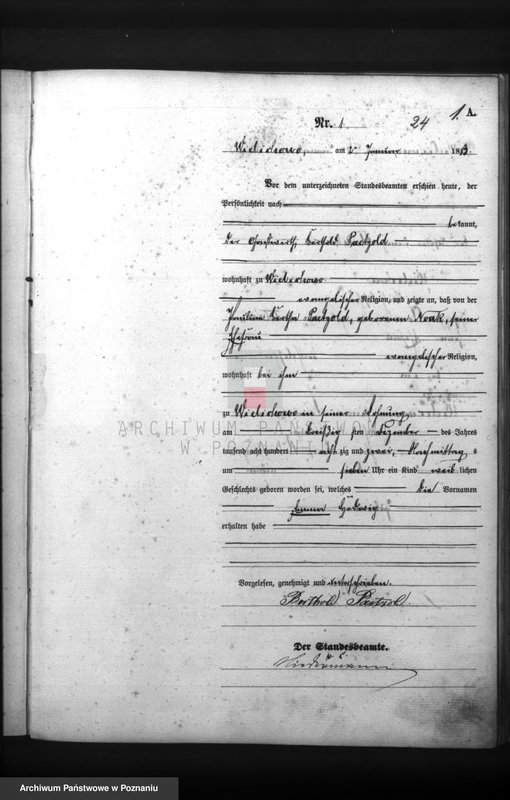 24 1. A.
Nr. 1
am 2 Januar 1883.
Vor dem unterzeichneten Standesbeamten erschien heute, der
Persönlichkeit nach
bekannt,
der Gastwirth Berthold Paetzold
wohnhaft zu
evangelischer Religion, und zeigte an, daß von der
Pauline Bertha Paetzold, geborenen Noak, seiner
Ehefrau
evangelischer Religion,
wohnhaft bei ihm
zu in seiner Wohnung
ARCHIWUM PAŃSTWOWE
W POZNANIU
am dreißig sten Dezember des Jahres
tausend acht hundert acht zig und zwei, Nachmittag s
um sieben Uhr ein Kind weib lichen
Geschlechts geboren worden sei, welches die Vornamen
Emma Hedwig
erhalten habe
Vorgelesen, genehmigt und unterschrieben.
Berthold
Der Standesbeamte.
Archiwum Państwowe w Poznaniu